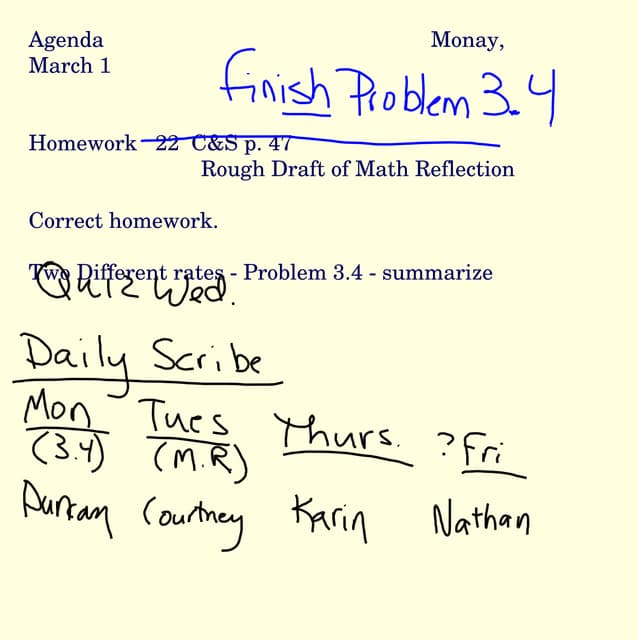 Agenda Monay,
March 1
Finish Problem 3.4
Homework 22 C&S p. 47
Rough Draft of Math Reflection
Correct homework.
Two Different rates - Problem 3.4 - summarize
Quiz Wed.
Daily Scribe
Mon Tues Thurs. ? Fri
(3.4) (M.R)
Courtney Karin Nathan